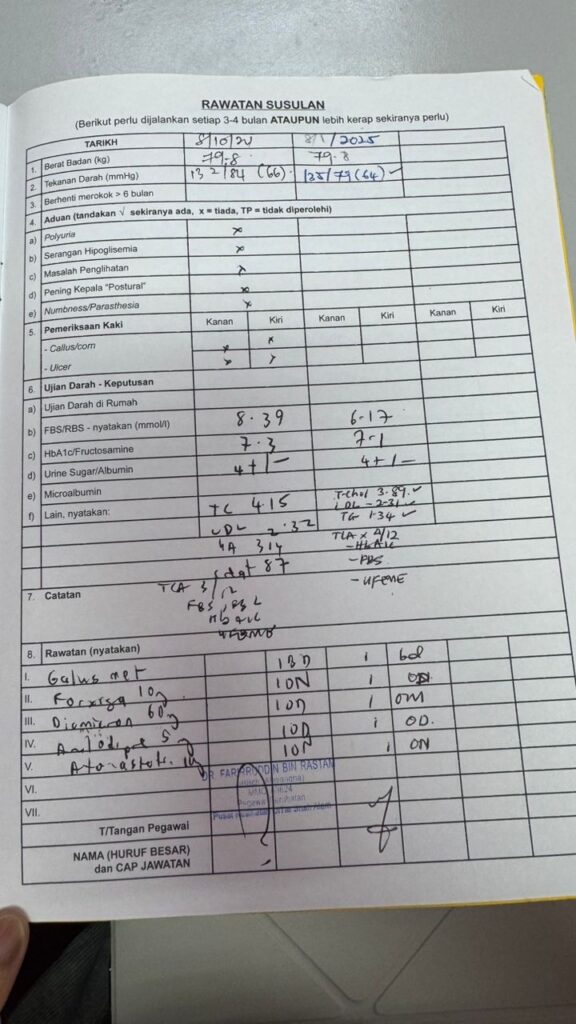 RAWATAN SUSULAN
(Berikut perlu dijalankan setiap 3-4 bulan ATAUPUN lebih kerap sekiranya perlu)
TARIKH 8/10/24 8/1/2025
1. Berat Badan (kg) 79.8 79.8
2. Tekanan Darah (mmHg) 132/84 (66) 135/79 (64) ✓
3. Berhenti merokok > 6 bulan
4. Aduan (tandakan √ sekiranya ada, x = tiada, TP = tidak diperolehi)
a) Polyuria x
b) Serangan Hipoglisemia x
c) Masalah Penglihatan x
d) Pening Kepala "Postural" x
e) Numbness/Parasthesia x
5. Pemeriksaan Kaki Kanan Kiri Kanan Kiri Kanan Kiri
- Callus/corn x x
- Ulcer x x
6. Ujian Darah - Keputusan
a) Ujian Darah di Rumah
b) FBS/RBS - nyatakan (mmol/l) 8.39 6.17
c) HbA1c/Fructosamine 7.3 7.1
d) Urine Sugar/Albumin 4+/- 4+/-
e) Microalbumin
f) Lain, nyatakan: TC 4.15 T.Chol 3.89 ✓
LDL 2.32 LDL - 2.31 ✓
314 TG 1.34 ✓
87 TCA x 4/12
- HbA1c
- FBS
- UFEME
7. Catatan TCA 3/12
FBS
HbA1c
8. Rawatan (nyatakan)
I. Galvus met 1 BD i bd
II. Forxiga 10g 1 ON i OD
III. Diamicron 60g 1 OD i OM
IV. Amlodipine 5g 1 OD i OD.
V. Atorvastatin 1 ON i ON
VI.
VII.
DR. FARHRUDDIN BIN RASTAN
T/Tangan Pegawai
NAMA (HURUF BESAR)
dan CAP JAWATAN